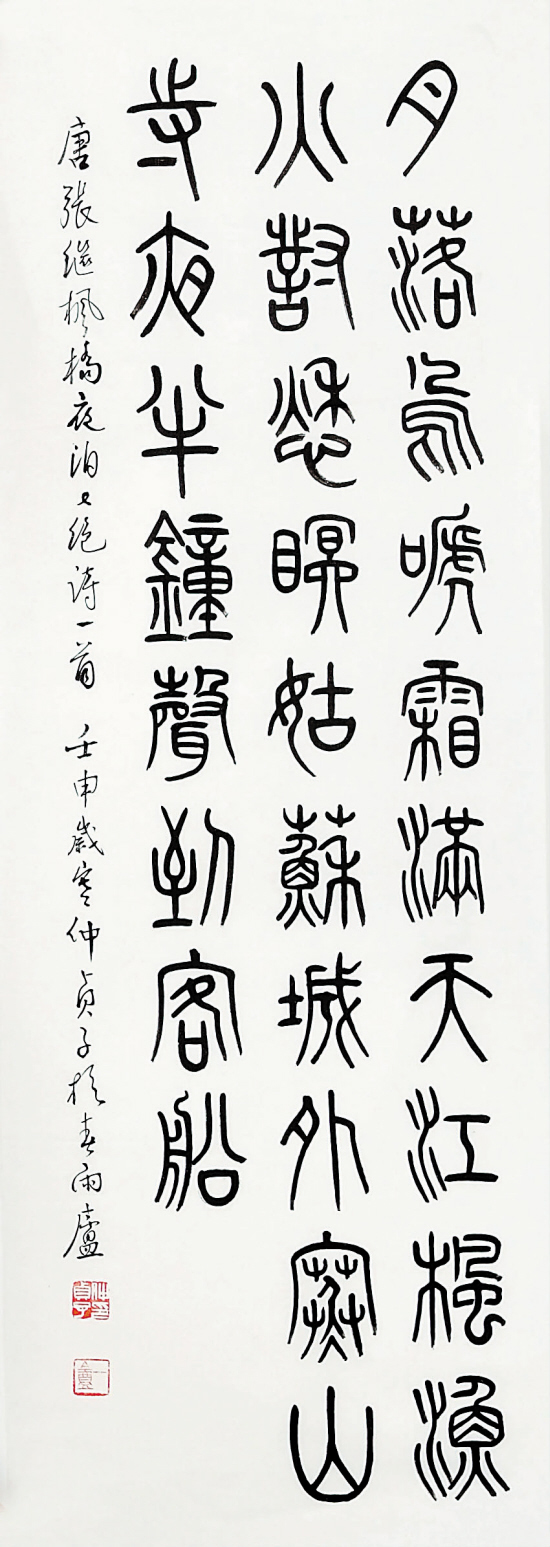 月落烏嗁霜滿天江楓漁
火對愁瞑姑蘇城外寒山
寺夜半鐘聲到客船
唐張继楓橋夜泊七绝诗一首 壬申歲寒仲貞子於春雨廬